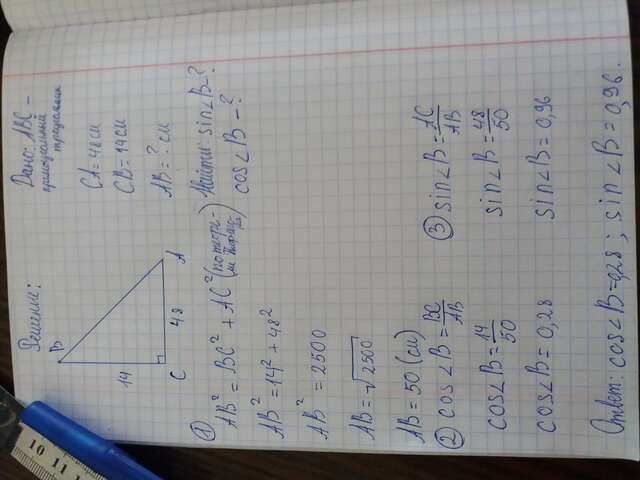 Решение:
Дано: ABC –
прямоугольный
треугольник
CA = 48 см
CB = 14 см
AB = ? см
Найти: sin∠B – ?
cos∠B – ?
B
14
C
48
A
①
AB² = BC² + AC² (по теоре-
ме Пифаго-
ра)
AB² = 14² + 48²
AB² = 2500
AB = √2500
AB = 50 (см)
② cos∠B = BC/AB
cos∠B = 14/50
cos∠B = 0,28
③ sin∠B = AC/AB
sin∠B = 48/50
sin∠B = 0,96
Ответ: cos∠B = 0,28 ; sin∠B = 0,96.
10 11 1